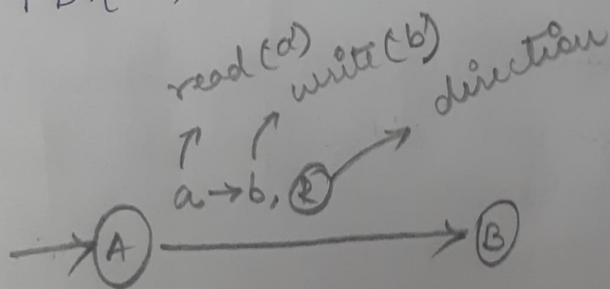 read (a) write (b) direction
a → b, R
A B